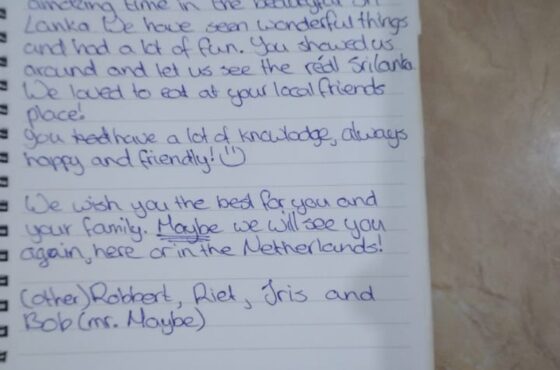 amazing time in the beautiful Sri
Lanka. We have seen wonderful things
and had a lot of fun. You showed us
around and let us see the réal Srilanka.
We loved to eat at your local friends
place!
You have a lot of knowladge, always
happy and friendly! :)
We wish you the best for you and
your family. Maybe we will see you
again, here or in the Netherlands!
(other) Robbert, Riet, Iris and
Bob (mr. Maybe)